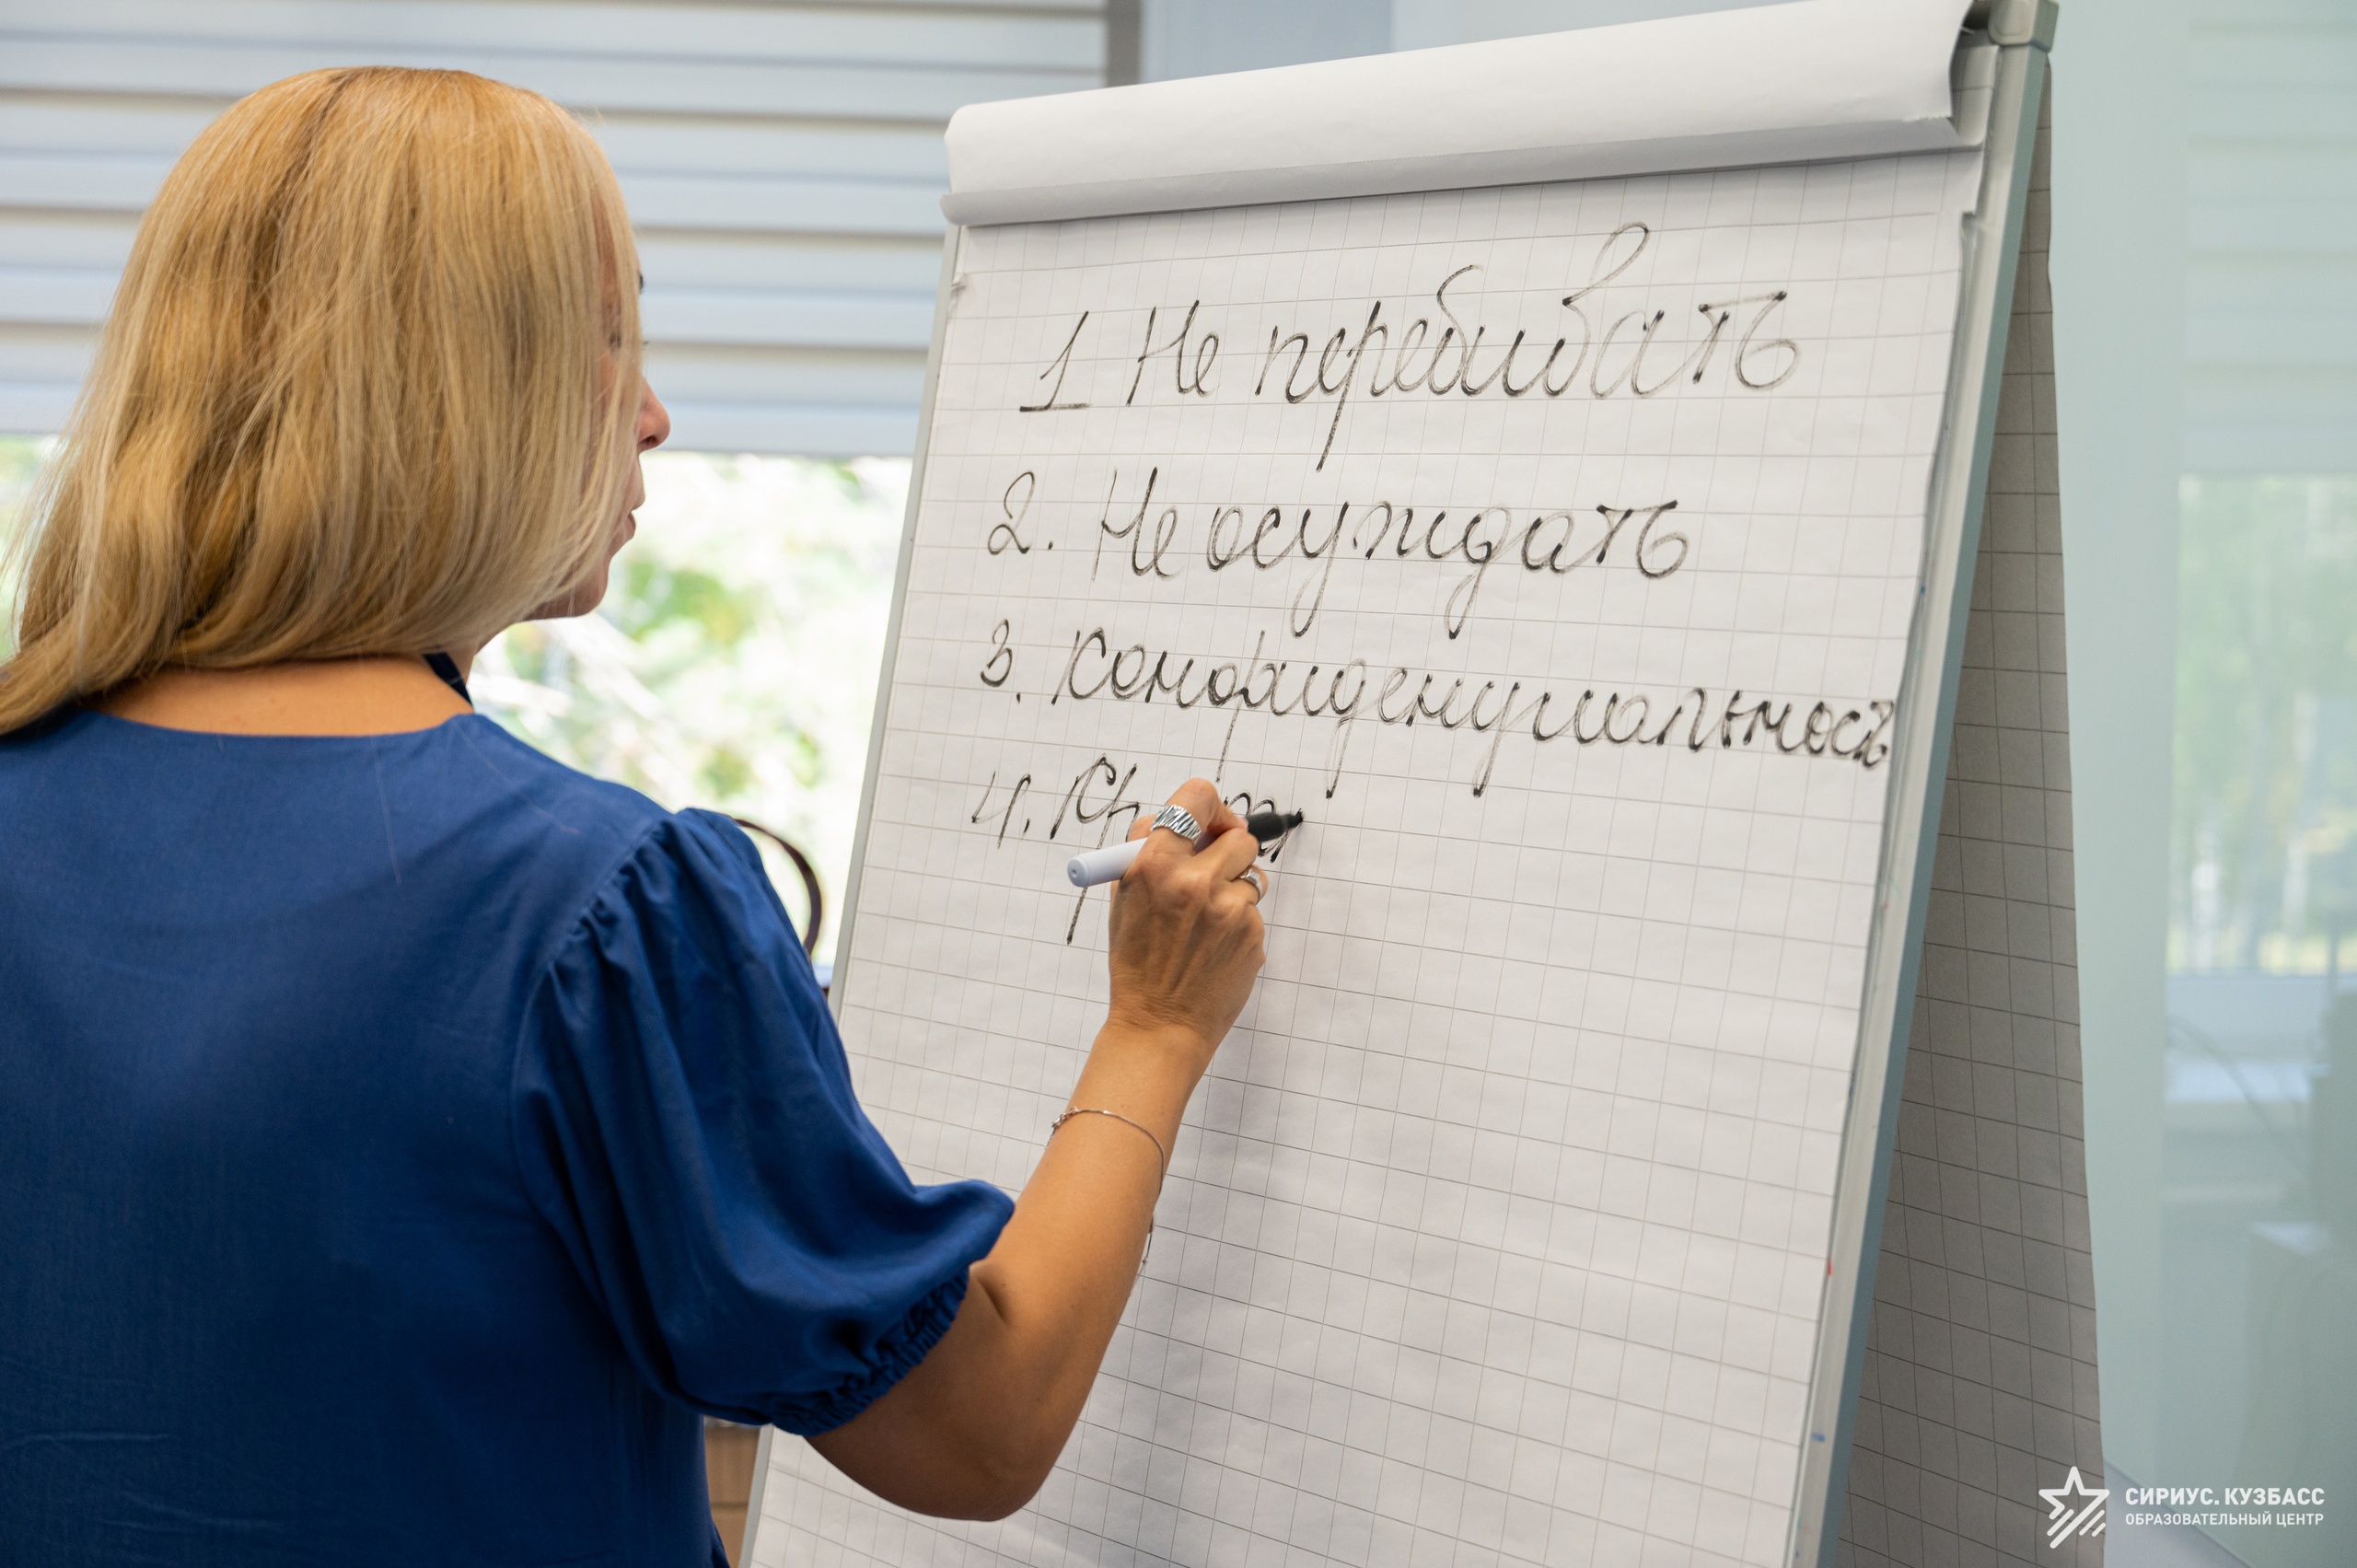 1 Не перебивать
2. Не осуждать
3. Конфиденциальность
4.
СИРИУС. КУЗБАСС
ОБРАЗОВАТЕЛЬНЫЙ ЦЕНТР